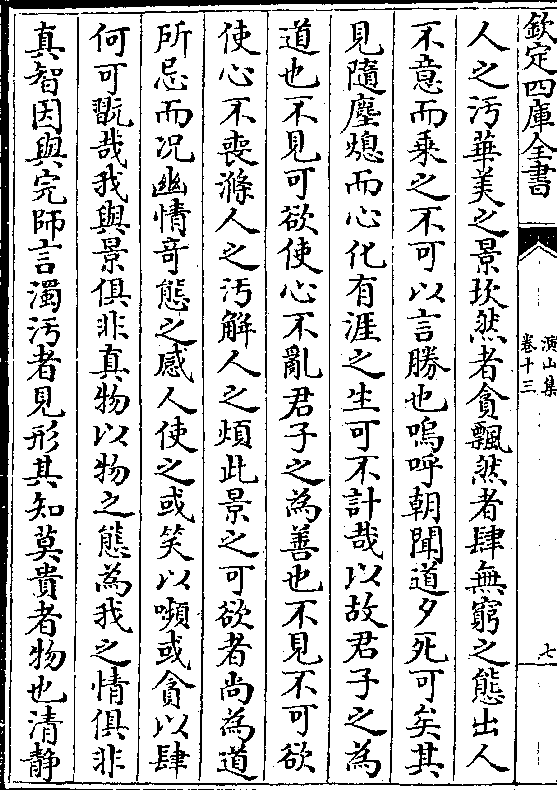 欽定四庫全書
演山集
卷十三
七
人之汚華美之景坎然者貪飄然者肆無窮之態出人
不意而乗之不可以言勝也嗚呼朝聞道夕死可矣其
見隨塵熄而心化有涯之生可不計哉以故君子之為
道也不見可欲使心不亂君子之為善也不見不可欲
使心不喪滌人之汚解人之煩此景之可欲者尚為道
所忌而况幽情奇態之感人使之或笑以嚬或貪以肆
何可翫哉我與景俱非真物以物之態為我之情俱非
真智因與完師言濁汚者見形其知莫貴者物也清静